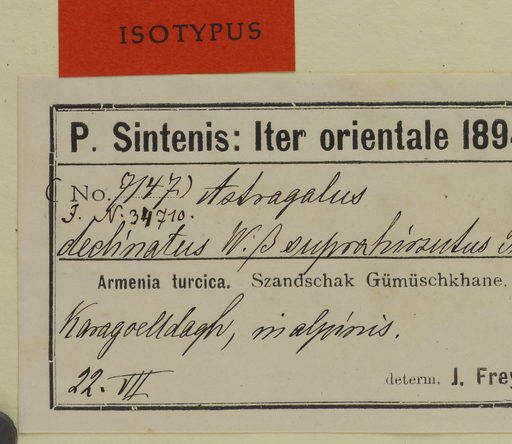 ISOTYPUS
P. Sintenis: Iter orientale 189
(No. 7147) Astragalus
J. N. 34710.
declinatus W. β suprahirsutus
Armenia turcica. Szandschak Gümüschkhane.
Karagoelldagh, in alpinis.
22. VII
determ. J. Frey